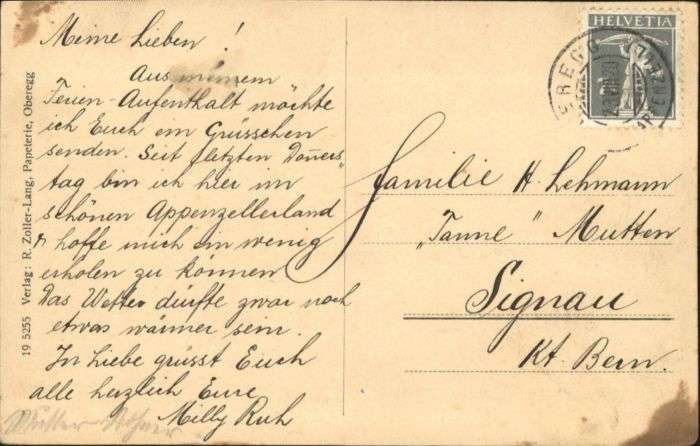 Meine Lieben !
Aus meinem
Ferien-Aufenthalt möchte
ich Euch ein Grüsschen
senden. Seit letzten Donners-
tag bin ich hier im
schönen Appenzellerland
& hoffe mich ein wenig
erholen zu können
Das Wetter dürfte zwar noch
etwas wärmer sein.
In Liebe grüsst Euch
alle herzlich Eure
Milly Ruh
19 5255 Verlag: R. Zoller-Lang, Papeterie, Oberegg
HELVETIA
Familie H. Lehmann
„Tanne“ Mutten
Signau
Kt. Bern.